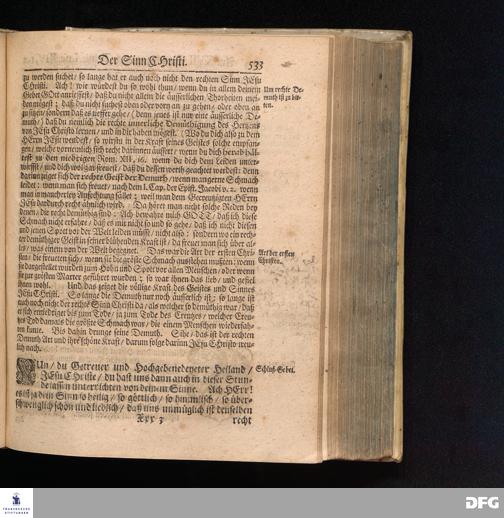 Der Sinn CHristi. 533
zu werden suchet/ so lange hat er auch noch nicht den rechten Sinn JEsu
Christi. Ach! wie würdest du so wohl thun/ wenn du in allem deinem
Gebet GOtt anrieffest/ daß du nicht allein die äusserlichen Thorheiten mei-
den mögest; daß du nicht suchest oben oder vorn an zu gehen/ oder oben an
zu sitzen/ sondern daß es tieffer gehe/ (denn jenes ist nur eine äusserliche De-
muth/) daß du nemlich die rechte innerliche Demüthigung des Hertzens
von JEsu Christo lernen/ und in dir haben mögest. Wo du dich also zu dem
HErrn JEsu wendest/ so wirstu in der Krafft seines Geistes solche empfan-
gen/ welche vornemlich sich recht darinnen äussert/ wenn du dich herab häl-
test zu den niedrigen Rom. XII, 16. wenn du dich dem Leiden unter-
wirffst/ und dich wol gar freuest/ daß du dessen werth geachtet wordest: denn
darinn zeiget sich der rechte Geist der Demuth/ wenn man gerne Schmach
leidet: wenn man sich freuet/ nach dem 1. Cap. der Epist. Jacobi v. 2. wenn
man in mancherley Anfechtung fället; weil man dem Gecreutzigten HErrn
JEsu dardurch recht ähnlich wird. Da höret man nicht solche Reden bey
denen/ die recht demüthig sind: Ach bewahre mich GOTT/ daß ich diese
Schmach nicht erfahre/ daß es mir nicht so und so gehe/ daß ich nicht diesen
und jenen Spott vor der Welt leiden müsse/ nicht also: sondern wo ein rech-
ter demüthiger Geist in seiner blühenden Krafft ist/ da freuet man sich über al-
les/ was einem von der Welt begegnet. Das war die Art der ersten Chri-
sten/ die freueten sich/ wenn sie die gröste Schmach ausstehen musten: wenn
sie dargestellet wurden zum Hohn und Spott vor allen Menschen/ oder wenn
sie zur grösten Marter geführet wurden; so war ihnen das lieb/ und gefiel
ihnen wohl. Und das zeiget die völlige Krafft des Geistes und Sinnes
JEsu Christi. So lange die Demuth nur noch äusserlich ist; so lange ist
auch noch nicht der rechte Sinn Christi da: als welcher so demüthig war/ daß
er sich erniedriget bis zum Tode/ ja zum Tode des Creutzes/ welcher Creu-
tzes Tod damals die gröste Schmach war/ die einem Menschen wiederfah-
ren kunte. Bis dahin drunge seine Demuth. Sihe/ das ist der rechten
Demuth Art und ihre schöne Krafft/ darum folge darinn JEsu Christo treu-
lich nach.
Um rechte De-
muth ist zu bit-
ten.
Art der ersten
Christen.
NUn/ du Getreuer und Hochgebenedeyeter Heiland/
JEsu CHriste/ du hast uns dann auch in dieser Stun-
de lassen unterrichten von deinem Sinne. Ach HErr!
es ist ja dein Sinn so heilig/ so göttlich/ so himmlisch/ so über-
schwenglich schön und liedlich/ daß uns unmüglich ist denselben
Schluß-Gebet.
Xxx 3 recht
FRANCKESCHE
STIFTUNGEN
DFG